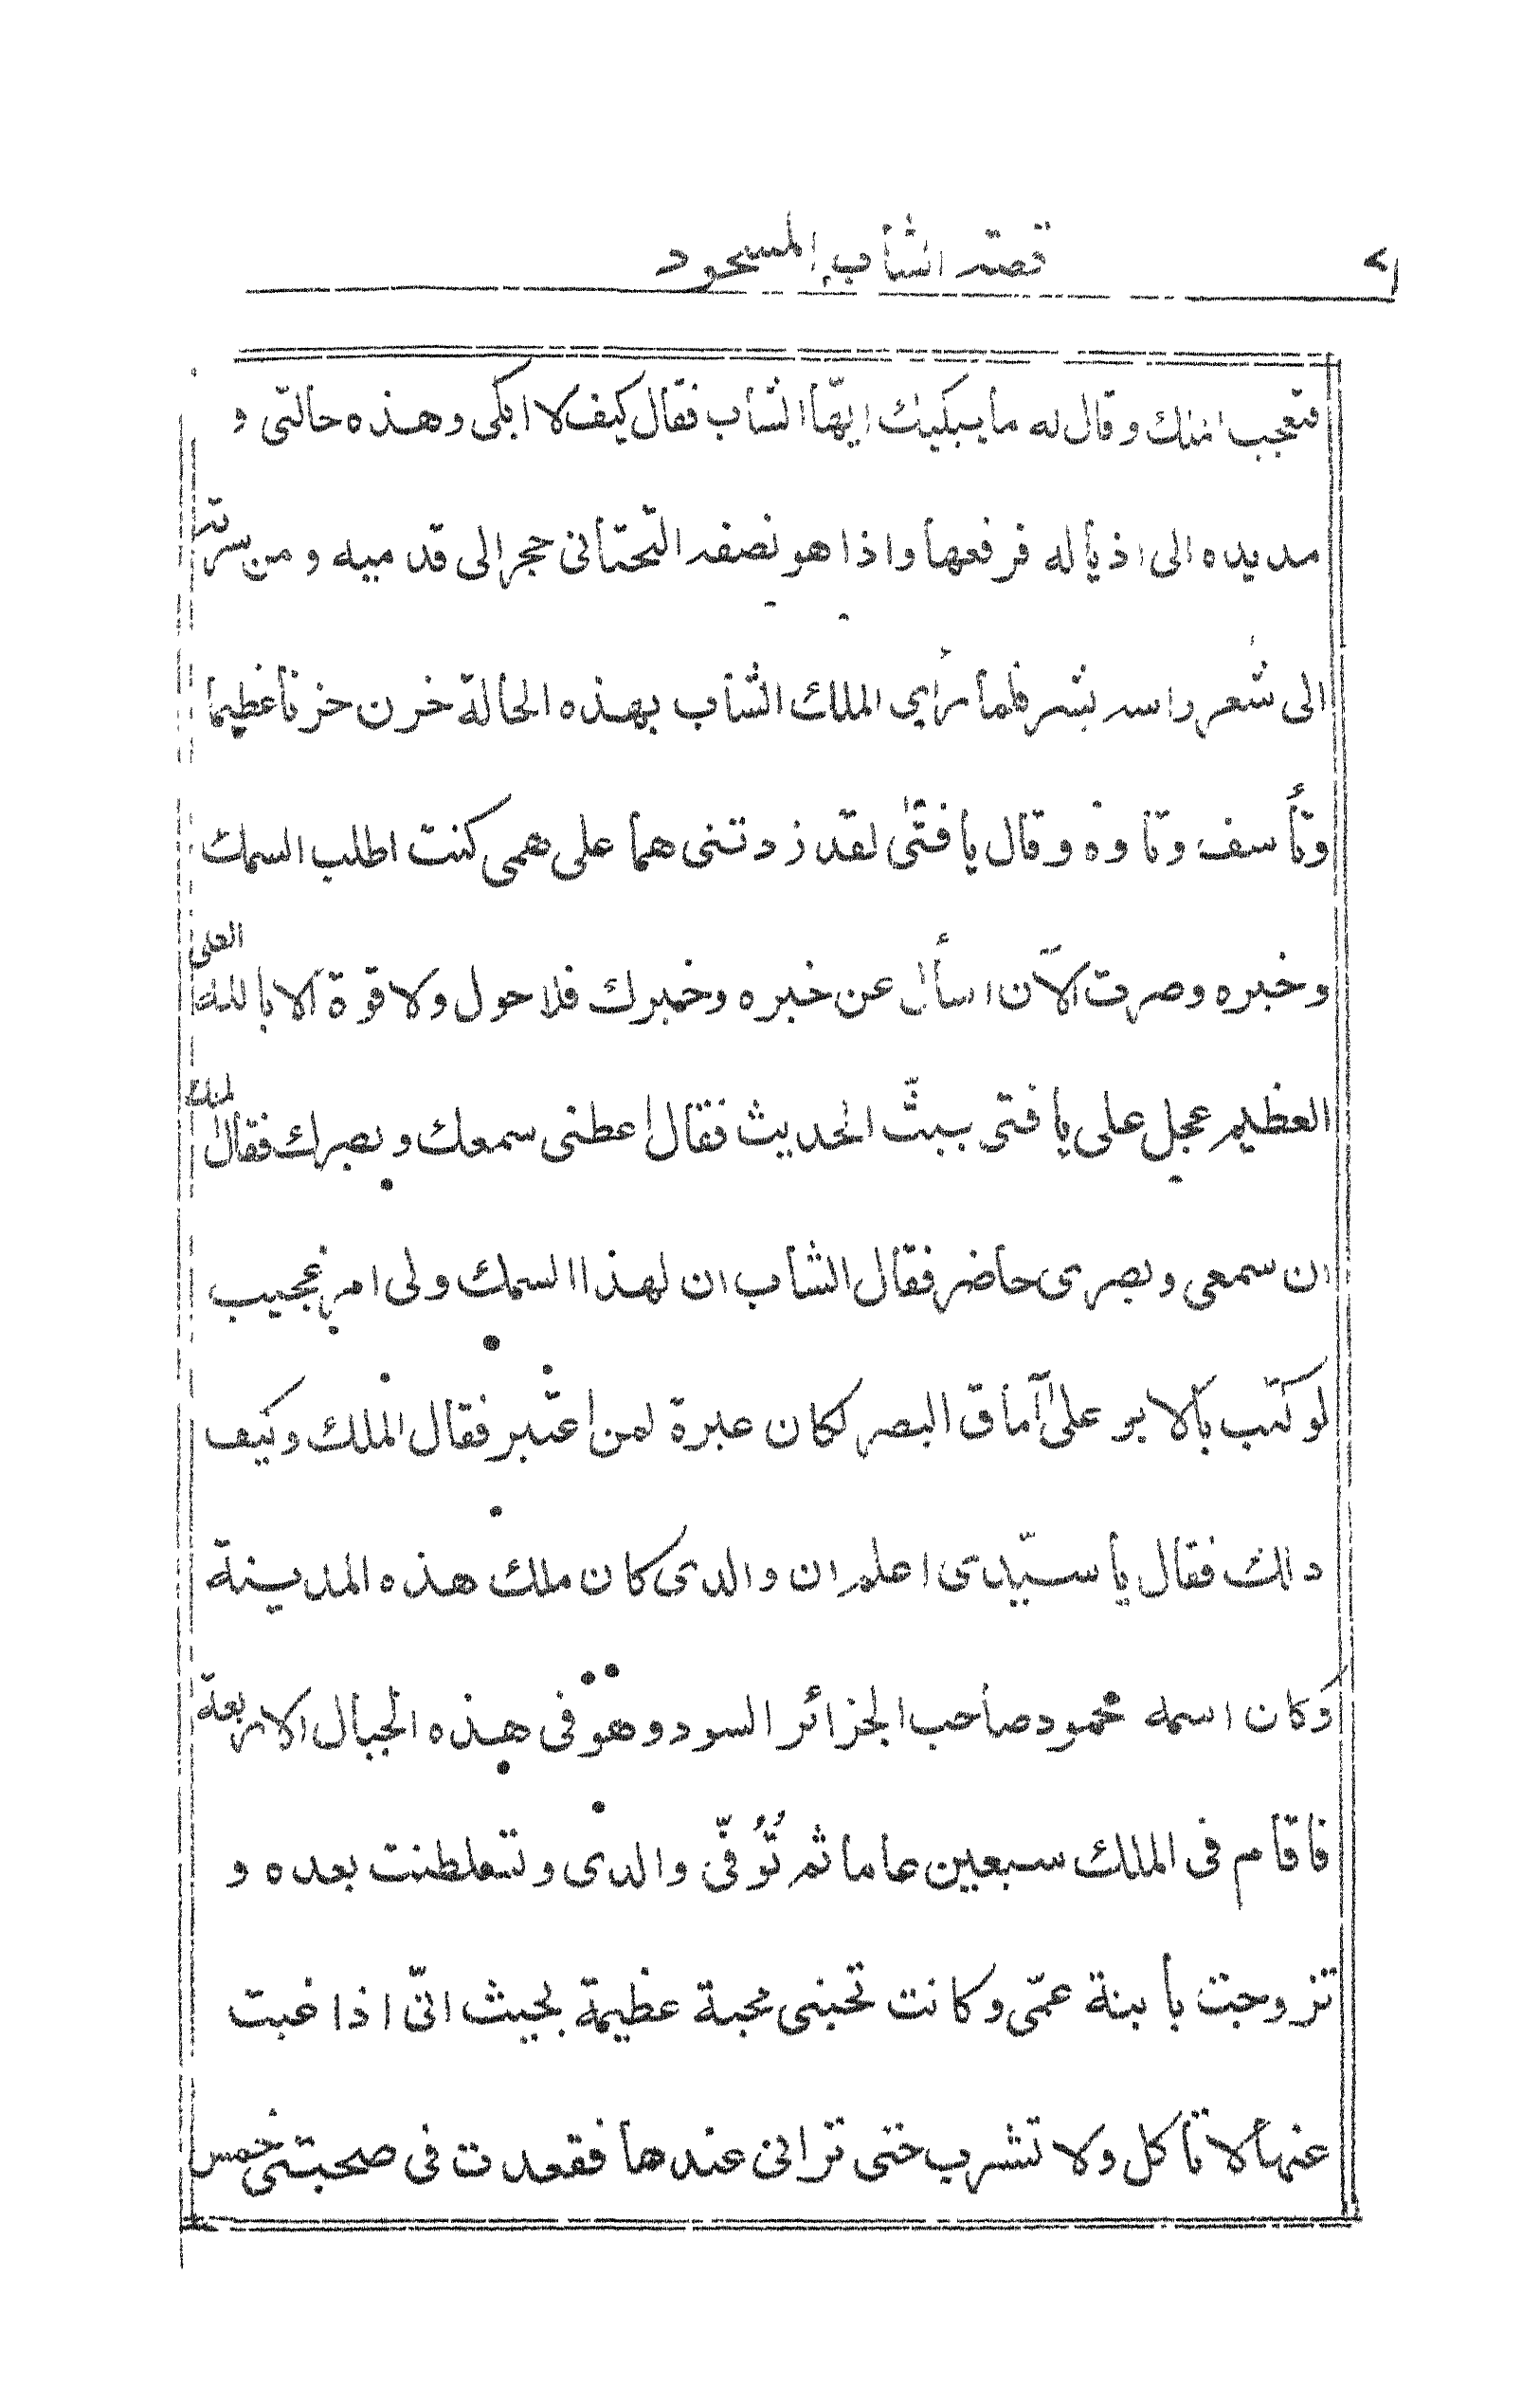 قصة الشاب المسحور
فتعجب الملك وقال له ما يبكيك ايّها الشاب فقال كيف لا ابكى وهذه حالتى و
مد يده الى اذياله فرفعها واذا هو نصفه التحتانى حجر الى قدميه ومن سرته
الى شعر راسه بشر فلما رأي الملك الشاب بهذه الحالة حزن حزنا عظيما
وتأسف وتاوه وقال يا فتى لقد زدتنى هما على همى كنت اطلب السمك
وخبره وصرت الآن اسأل عن خبره وخبرك فلا حول ولا قوة الا بالله العلى
العظيم عجل على يا فتى ببثّ الحديث فقال اعطنى سمعك وبصرك فقال الملك
ان سمعى وبصرى حاضر فقال الشاب ان لهذا السمك ولى امر عجيب
لو كتب بالابر على آماق البصر لكان عبرة لمن اعتبر فقال الملك وكيف
ذلك فقال يا سيّدى اعلم ان والدى كان ملك هذه المدينة
وكان اسمه محمود صاحب الجزائر السود وهو فى هذه الجبال الاربعة
فاقام فى الملك سبعين عاما ثم تُوُفّى والدى وتسلطنت بعده و
تزوجت بابنة عمّى وكانت تحبنى محبة عظيمة بحيث انّى اذا غبت
عنها لا تأكل ولا تشرب حتى ترانى عندها فقعدت فى صحبتى خمس